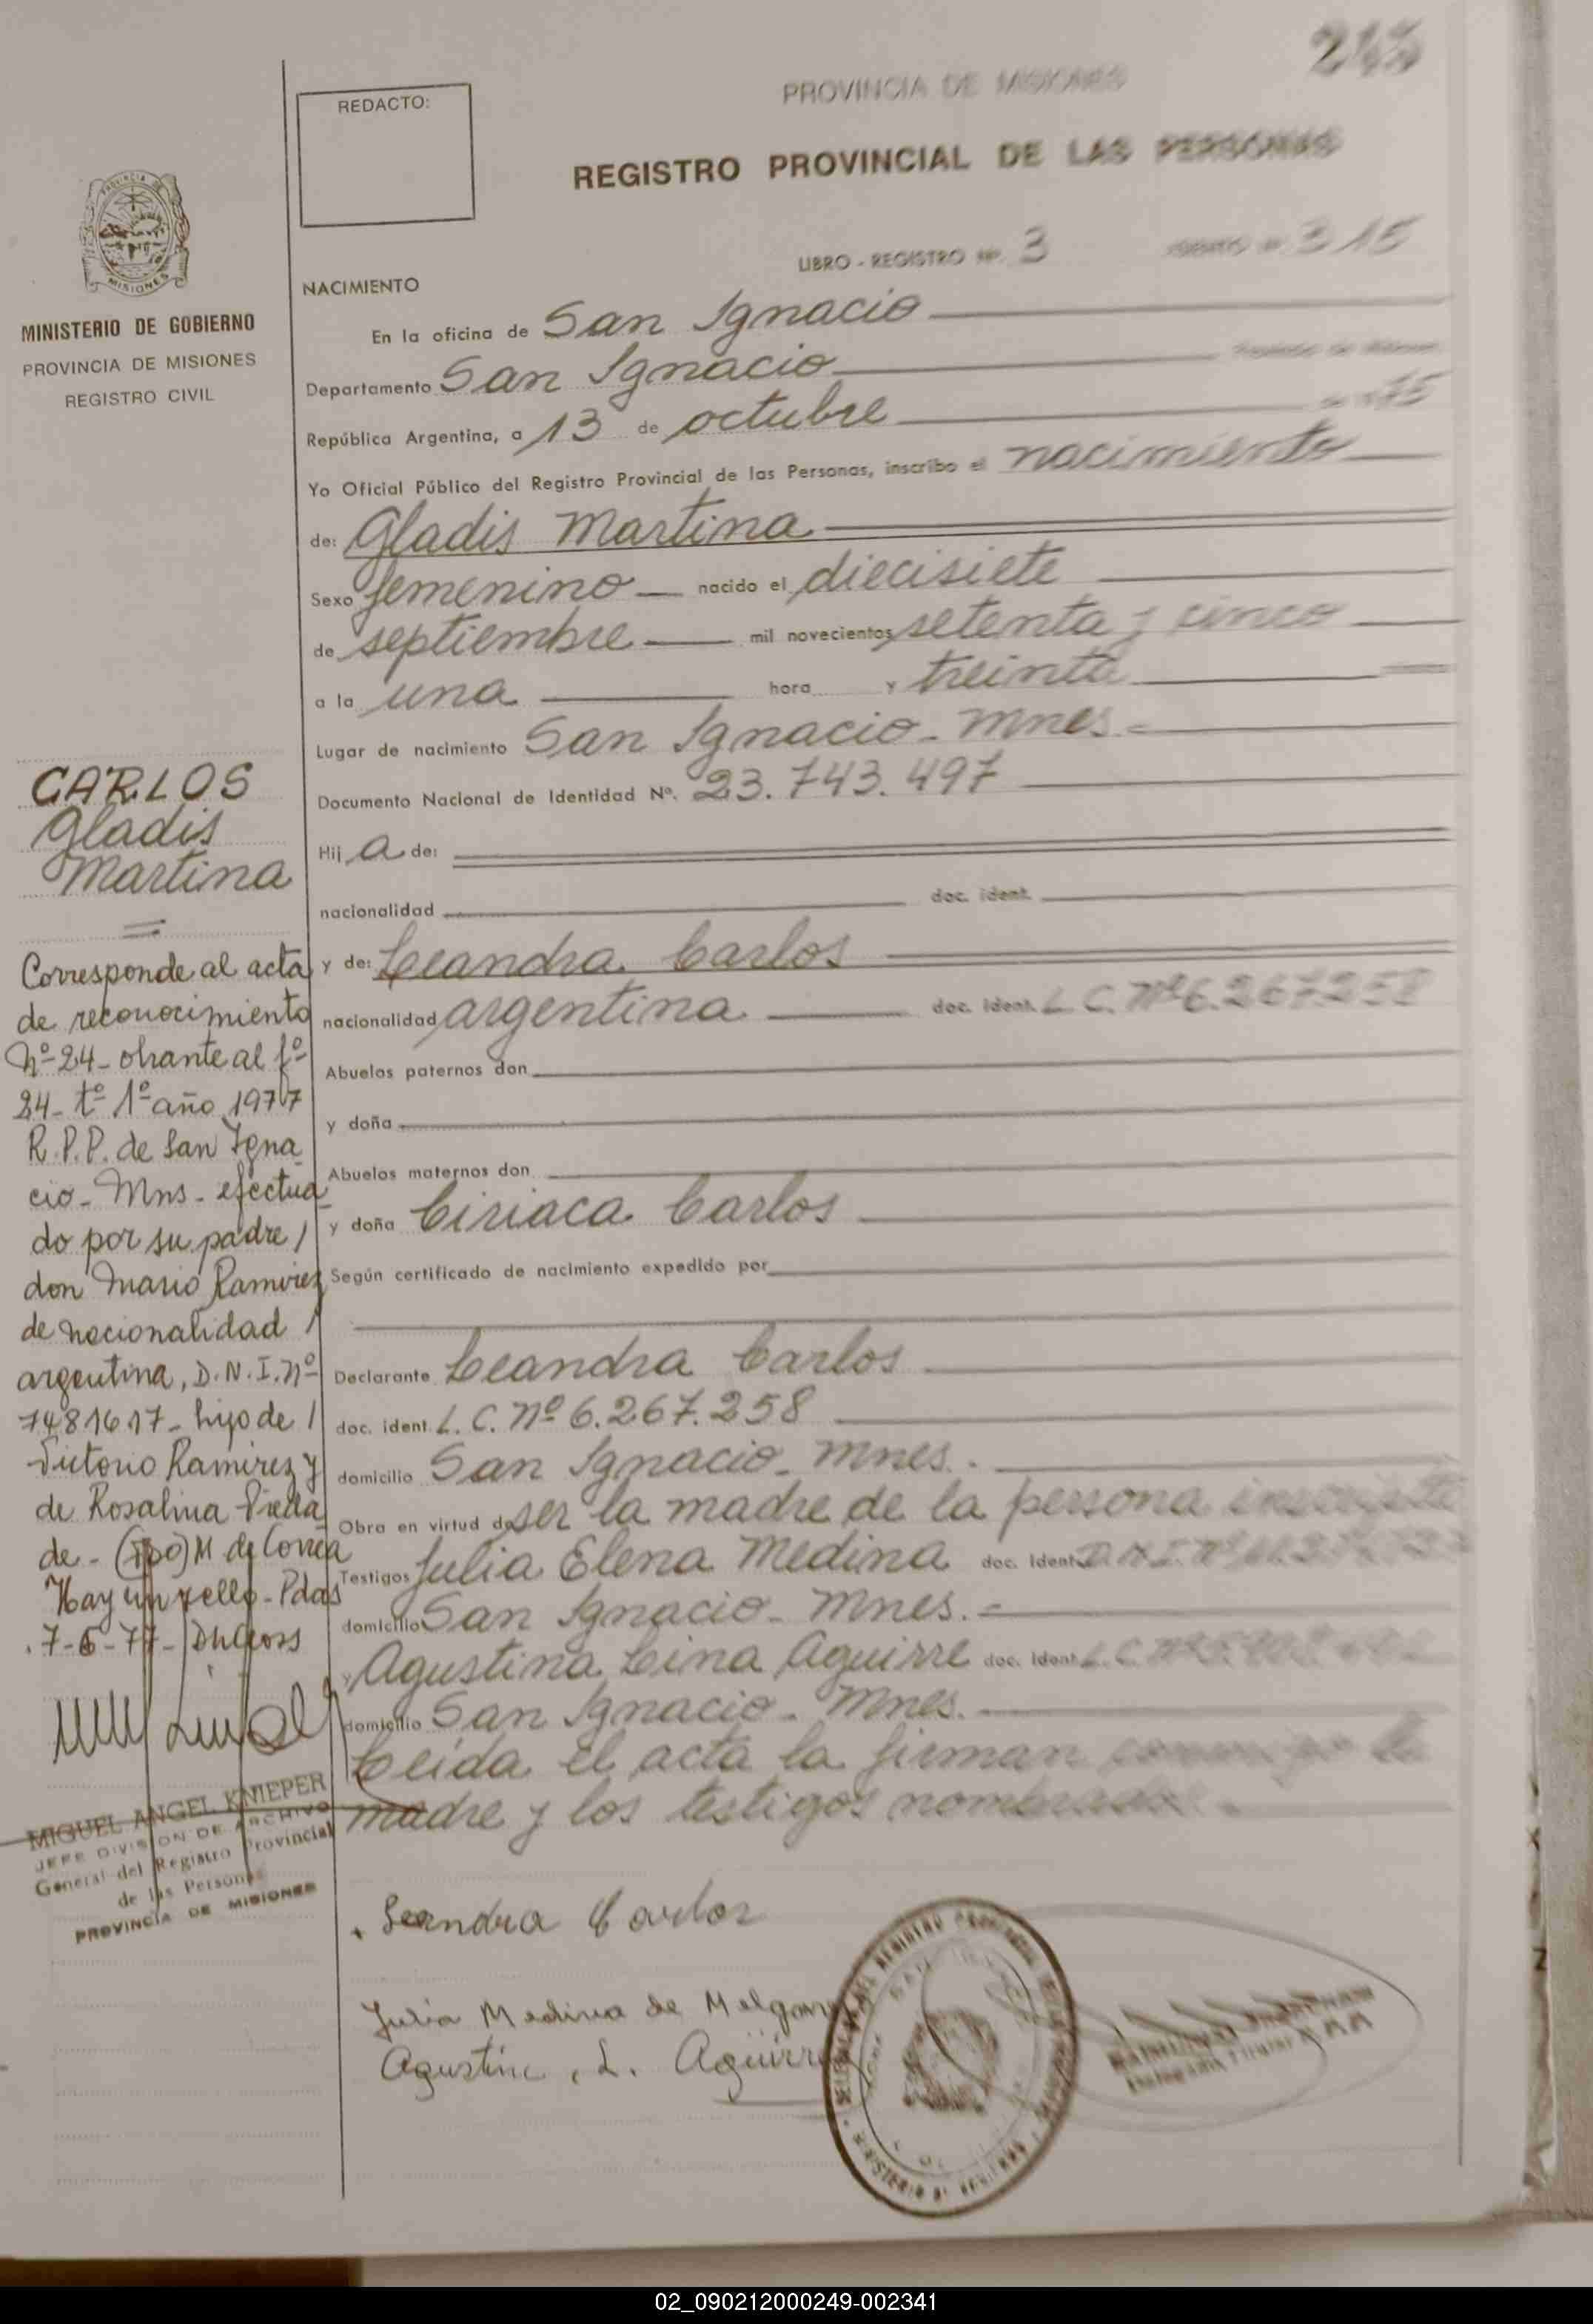 REDACTO:
PROVINCIA DE MISIONES
REGISTRO PROVINCIAL DE LAS PERSONAS
MISIONES
MINISTERIO DE GOBIERNO
PROVINCIA DE MISIONES
REGISTRO CIVIL
LIBRO - REGISTRO Nº 3 315
NACIMIENTO
En la oficina de San Ignacio
Departamento San Ignacio
República Argentina, a 13 de octubre 75
Yo Oficial Público del Registro Provincial de las Personas, inscribo el nacimiento
de: Gladis Martina
Sexo femenino nacido el diecisiete
de septiembre mil novecientos setenta y cinco
a la una hora y treinta
Lugar de nacimiento San Ignacio - Mnes.
Documento Nacional de Identidad Nº. 23.743.497
Hij a de:
nacionalidad doc. ident.
y de: Leandra Carlos
nacionalidad argentina doc. ident. L.C. Nº 6.267.258
Abuelos paternos don
y doña
Abuelos maternos don
y doña Ciriaca Carlos
Según certificado de nacimiento expedido por
Declarante Leandra Carlos
doc. ident. L.C. Nº 6.267.258
domicilio San Ignacio - Mnes.
Obra en virtud de ser la madre de la persona
Testigos Julia Elena Medina doc. Ident.
domicilio San Ignacio - Mnes.
y Agustina Lina Aguirre doc. Ident. L.C.
domicilio San Ignacio - Mnes.
Leída el acta la firman
madre y los testigos
CARLOS
Gladis
Martina
Corresponde al acta
de reconocimiento
Nº 24 - obrante al fº
24 - tº 1º año 1977
R.P.P. de San Igna
cio - Mns - efectua
do por su padre /
don Mario Ramirez
de nacionalidad /
argentina, D.N.I. nº
7481617 - hijo de /
Ramirez y
de Rosalina
de - M de Correa
Hay un sello - Pdas
7-6-77
MIGUEL ANGEL KNIEPER
JEFE DIVISION DE ARCHIVO
General del Registro Provincial
de las Personas
PROVINCIA DE MISIONES
Leandra Carlos
Julia Medina de
Agustin. L. Aguirre
02_090212000249-002341